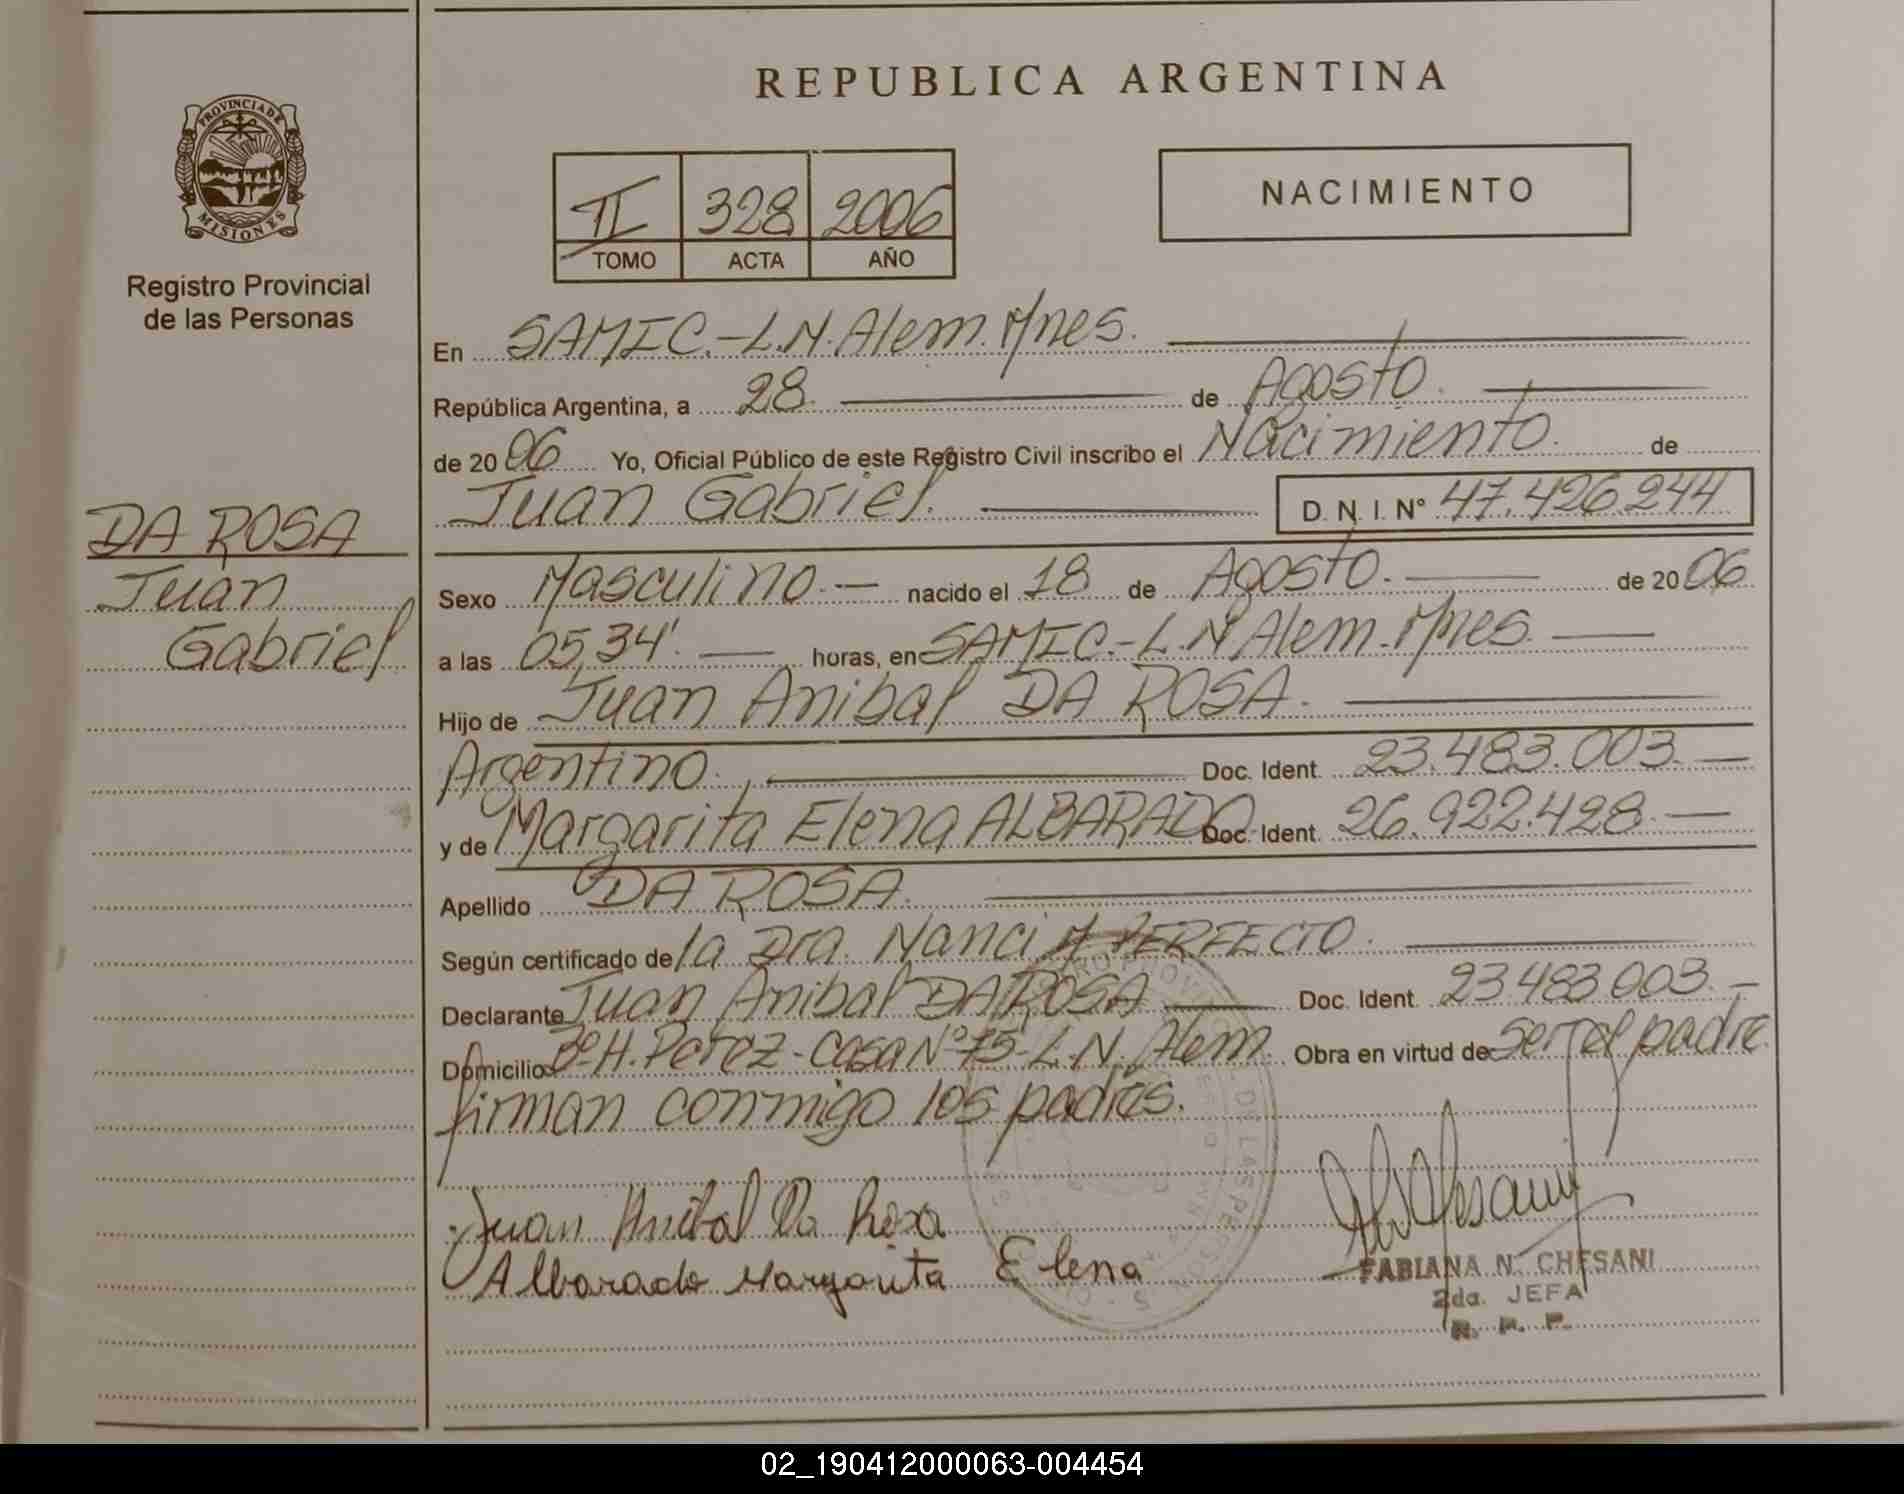 REPUBLICA ARGENTINA
PROVINCIA DE
MISIONES
Registro Provincial
de las Personas
II 328 2006
TOMO ACTA AÑO
NACIMIENTO
En SAMIC.-L.N.Alem.Mnes.
República Argentina, a 28. de Agosto.
de 2006 Yo, Oficial Público de este Registro Civil inscribo el Nacimiento. de
Juan Gabriel. D. N. I. Nº 47.426.244
DA ROSA
Juan
Gabriel
Sexo Masculino.- nacido el 18 de Agosto. de 2006
a las 05,34'. horas, en SAMIC.-L.N Alem.Mnes.
Hijo de Juan Anibal DA ROSA.
Argentino. Doc. Ident. 23.483.003.-
y de Margarita Elena ALBARADO Doc. Ident. 26.922.428.-
Apellido DA ROSA.
Según certificado de la Dra. Nanci M PERFECTO.
Declarante Juan Anibal DA ROSA Doc. Ident. 23.483.003.-
Domicilio Bº H. Perez-Casa Nº 75-L.N. Alem. Obra en virtud de ser el padre
firman conmigo los padres.
Juan Anibal Da Rosa
Albarado Margarita Elena
FABIANA N. CHESANI
2da. JEFA
R. P. P.
02_190412000063-004454